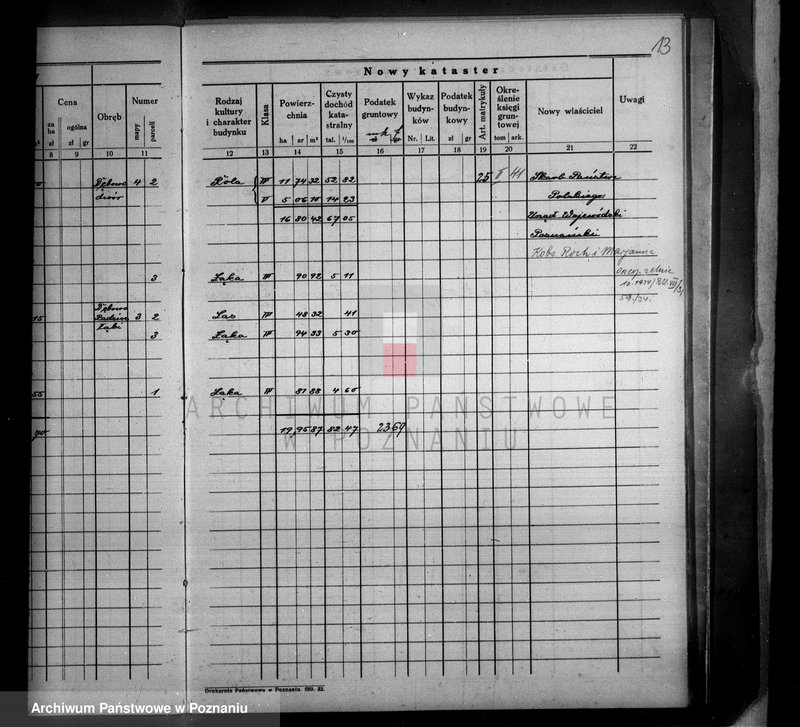 13
Nowy kataster
Cena
Numer
za ha
ogólna
Obręb
mapy
parceli
Rodzaj kultury i charakter budynku
Klasa
Powierzchnia
Czysty dochód katastralny
Podatek gruntowy
Wykaz budynków
Podatek budynkowy
Art. matrykuły
Określenie księgi gruntowej
Nowy właściciel
Uwagi
zł
zł gr
ha ar m²
tal. 1/100
Nr. Lit.
zł gr
tom ark.
8 9 10 11 12 13 14 15 16 17 18 19 20 21 22
Dębno 4 2 Rola IV 11 74 32 52 82 25 II 41 Skarb Państwa
dwór V 5 06 10 14 23 Polskiego
16 80 42 67 05 Urząd Wojewódzki
Poznański.
Kobs Roch i Marjanna
3 Łąka III 90 92 5 11
Dębno
3 2 Las IV 48 32 41
3 Łąka IV 94 33 5 30
1 Łąka IV 81 88 4 60
19 95 87 82 47 23 69
ARCHIWUM PAŃSTWOWE
W POZNANIU
Drukarnia Państwowa w Poznaniu.
Archiwum Państwowe w Poznaniu